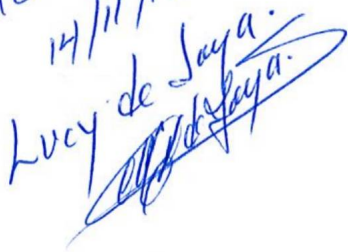 14/11/
Lucy de Loya.
de Loya.